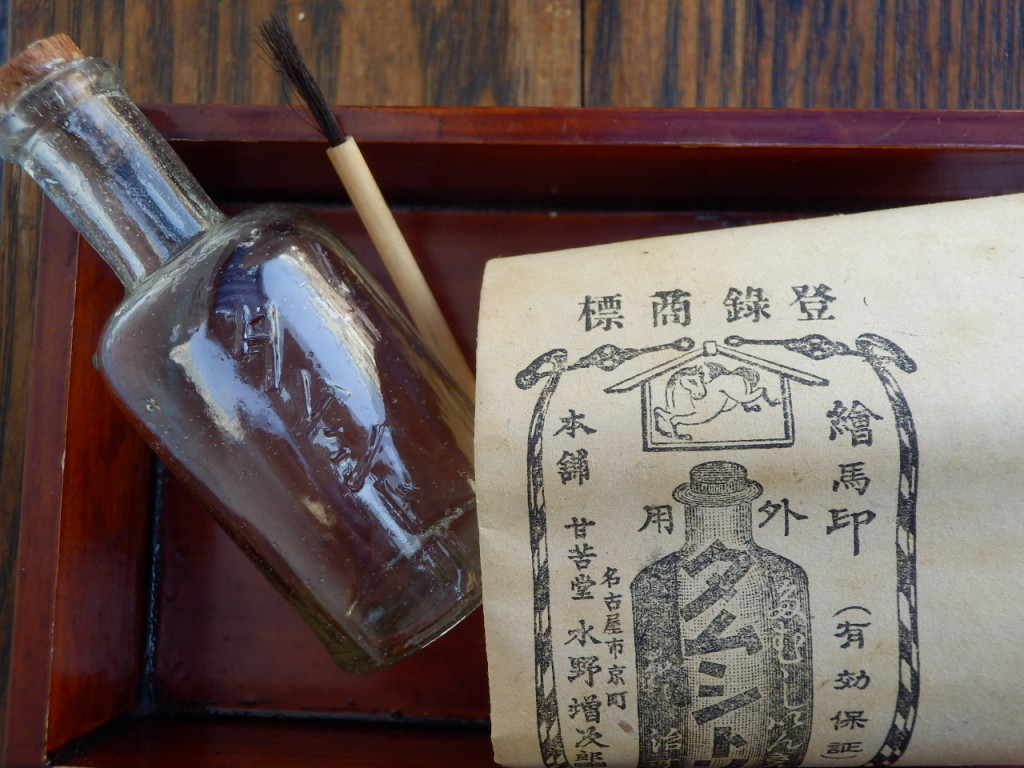 標商錄登
繪馬印
(有効保証)
用外
タムシト
本舗
名古屋市京町
甘苦堂 水野増次郎